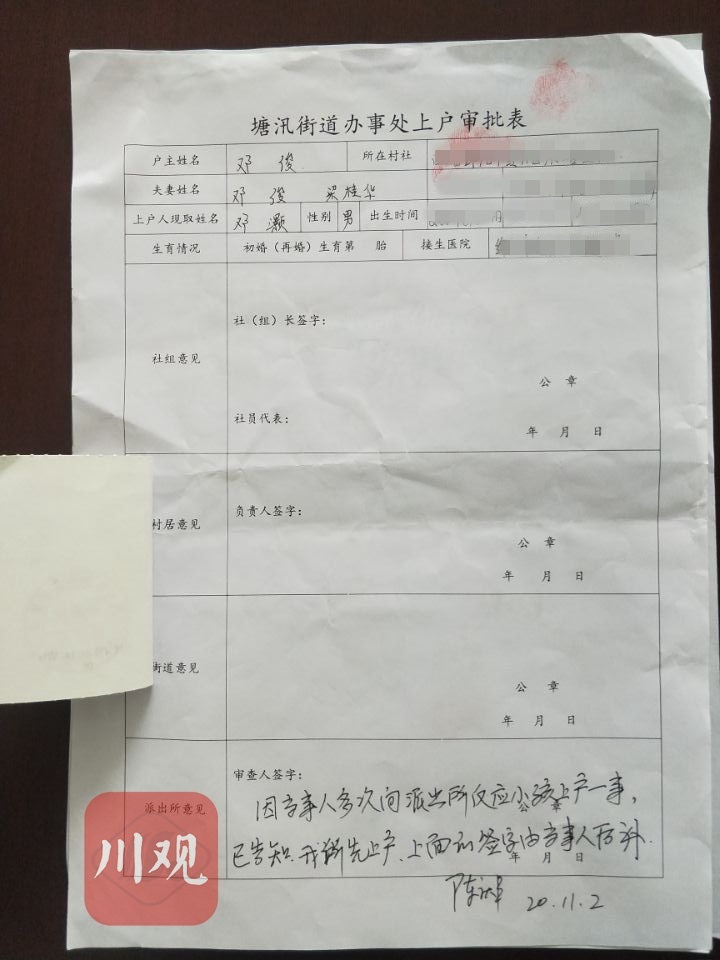 塘汛街道办事处上户审批表
户主姓名 邓 俊 所在村社
夫妻姓名 邓 俊 梁桂华
上户人现取姓名 邓 灏 性别 男 出生时间
生育情况 初婚（再婚）生育第 胎 接生医院
社（组）长签字：
社组意见
公 章
社员代表：
年 月 日
负责人签字：
村居意见
公 章
年 月 日
街道意见
公 章
年 月 日
审查人签字：
派出所意见
因当事人多次向派出所反应小孩上户一事，
已告知我所先上户，上面的签字由当事人后补.
年 月 日
20.11.2
川观